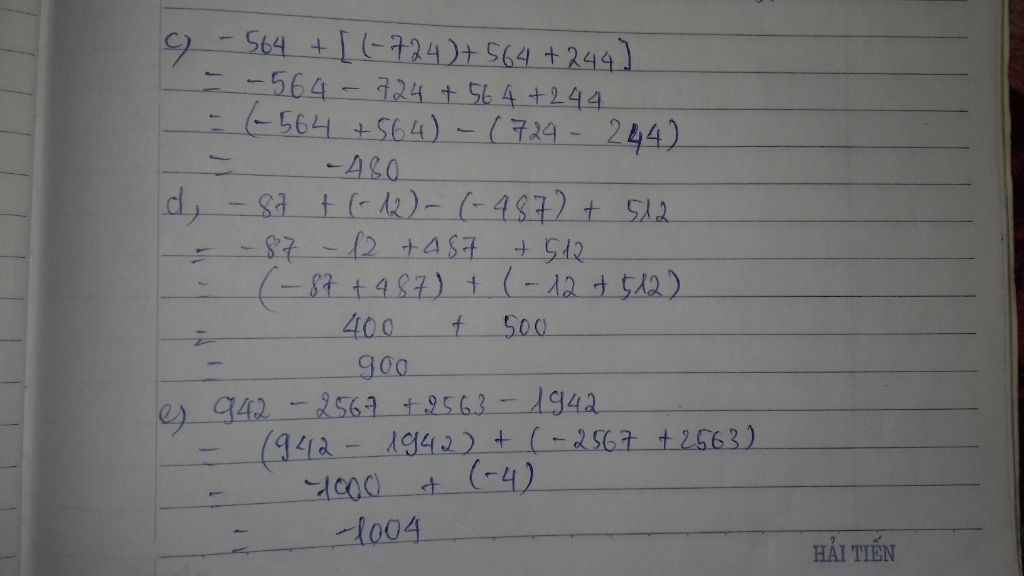 c) -564 + [(-724) + 564 + 244]
= -564 - 724 + 564 + 244
= (-564 + 564) - (724 - 244)
= -480
d, -87 + (-12) - (-487) + 512
= -87 - 12 + 487 + 512
= (-87 + 487) + (-12 + 512)
= 400 + 500
= 900
e) 942 - 2567 + 2563 - 1942
= (942 - 1942) + (-2567 + 2563)
= -1000 + (-4)
= -1004
HẢI TIẾN